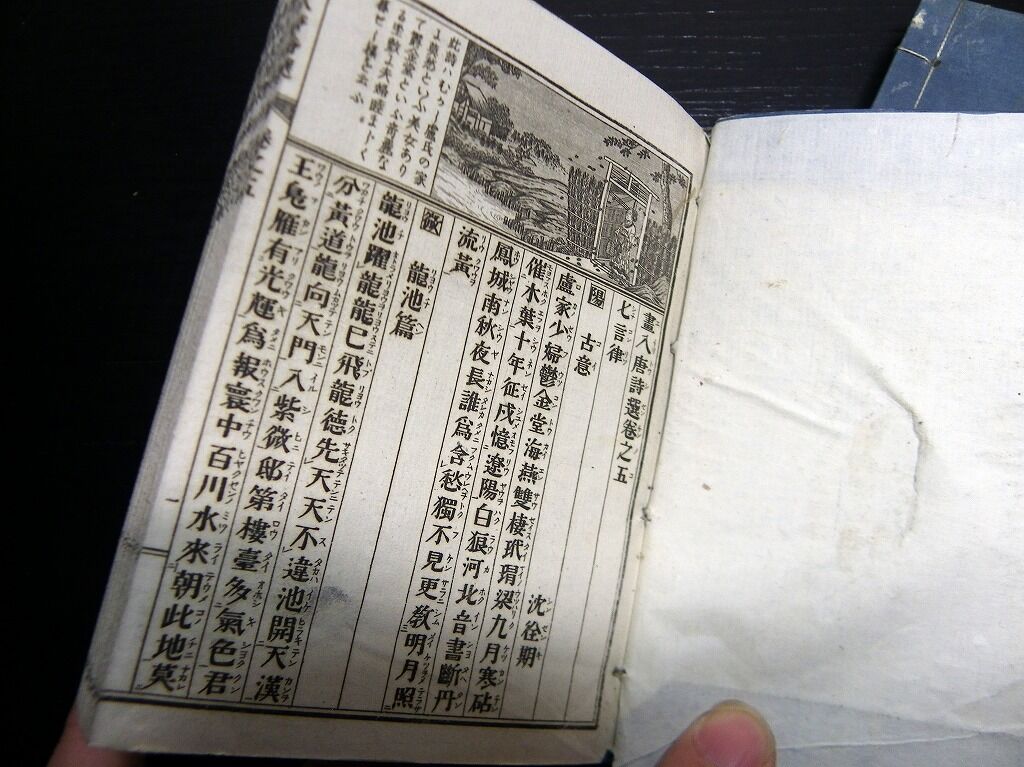 畫入唐詩選卷之五
七言律
陽 古意 沈佺期
盧家少婦鬱金堂海燕雙棲玳瑁梁九月寒砧
催木葉十年征戍憶遼陽白狼河北音書斷丹
鳳城南秋夜長誰爲含愁獨不見更教明月照
流黃
微 龍池篇
龍池躍龍龍已飛龍德先天天不違池開天漢
分黃道龍向天門入紫微邸第樓臺多氣色君
王鳧雁有光輝爲報寰中百川水來朝此地莫
此詩ハむかし盧氏の家
に莫愁といふ美女あり
て鬱金堂といふ奇麗な
る座敷に夫婦睦ましく
暮せし様を云ふ